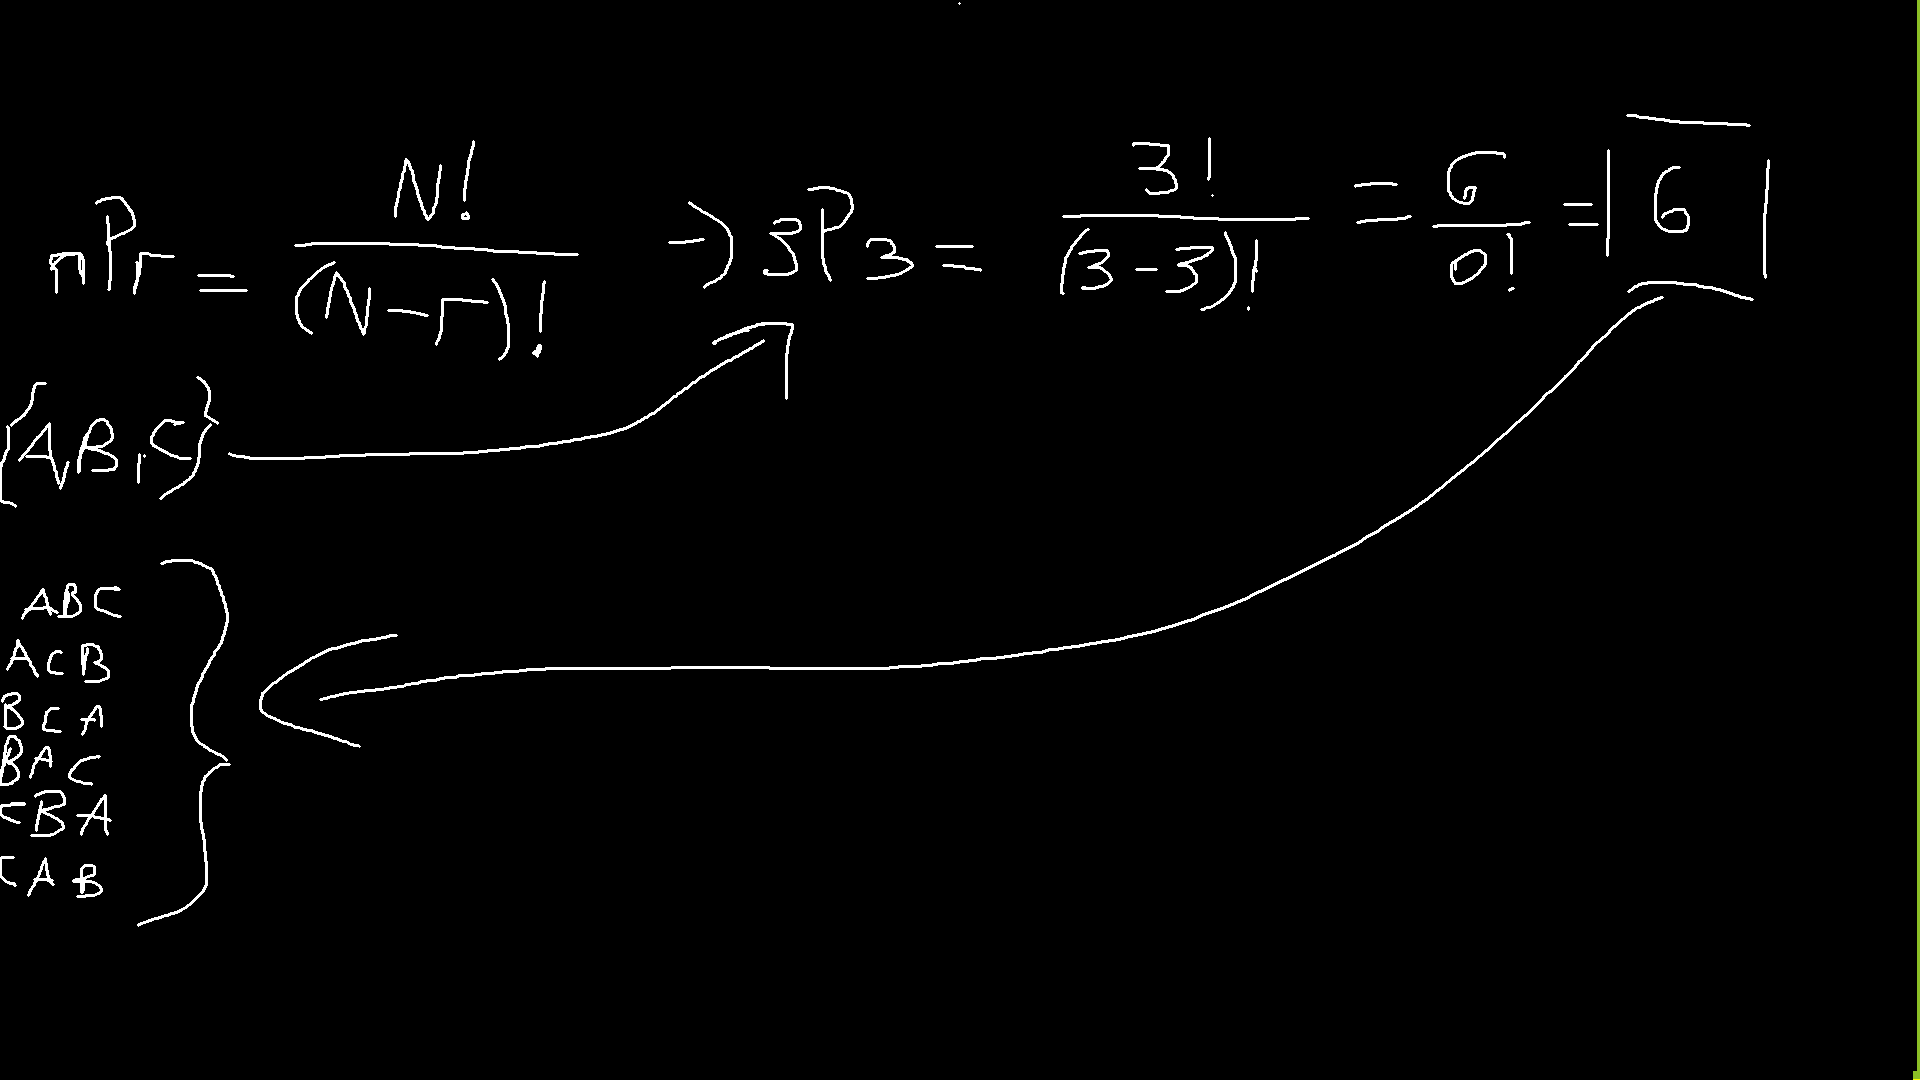 nPr = N! / (N-r)! → 3P3 = 3! / (3-3)! = 6 / 0! = 6
{A,B,C}
ABC
ACB
BCA
BAC
CBA
CAB